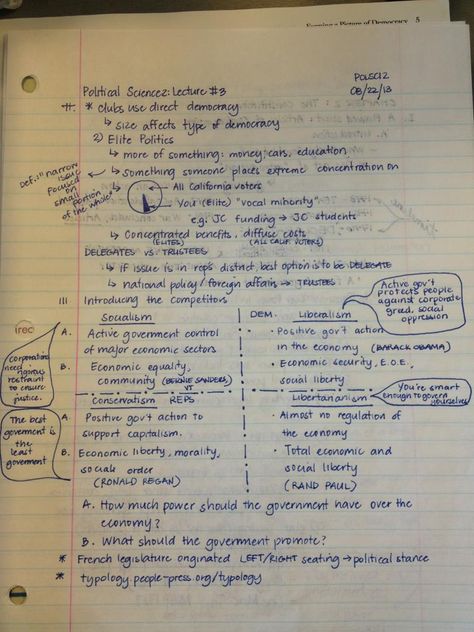 Forming a Picture of Democracy 5
POLSCI 2
Political Science 2: Lecture #3 08/22/13
II. * clubs use direct democracy
↳ size affects type of democracy
2) Elite Politics
↳ more of something: money, cars, education
↳ something someone places extreme concentration on
DEF: "narrow issue
focused on
small portion
of the whole"
↳ All California voters
You (Elite) "vocal minority"
e.g: JC funding → JC students
↳ Concentrated benefits, diffuse costs
(ELITES) (ALL CALIF. VOTERS)
DELEGATES vs. TRUSTEES
↳ if issue is in reps district, best option is to be DELEGATE
↳ national policy/foreign affairs → TRUSTEES
III Introducing the Competitors
Active gov't
protects people
against corporate
greed, social
oppression
Socialism DEM. Liberalism
A. Active government control
of major economic sectors
B. Economic equality,
community (BERNIE SANDERS)
VT
· Positive gov't action
in the economy (BARACK OBAMA)
· Economic security, E.O.E.,
social liberty
corporations
need
rigorous
restraint to
ensure
justice.
Conservatism REPS Libertarianism
You're smart
enough to govern
yourselves
A. Positive gov't action to
support capitalism.
B. Economic liberty, morality,
social order
(RONALD REGAN)
· Almost no regulation of
the economy
· Total economic and
social liberty
(RAND PAUL)
The best
goverment is
the
least
goverment
A. How much power should the government have over the
economy?
B. What should the government promote?
* French legislature originated LEFT/RIGHT seating → political stance
* typology.people-press.org/typology